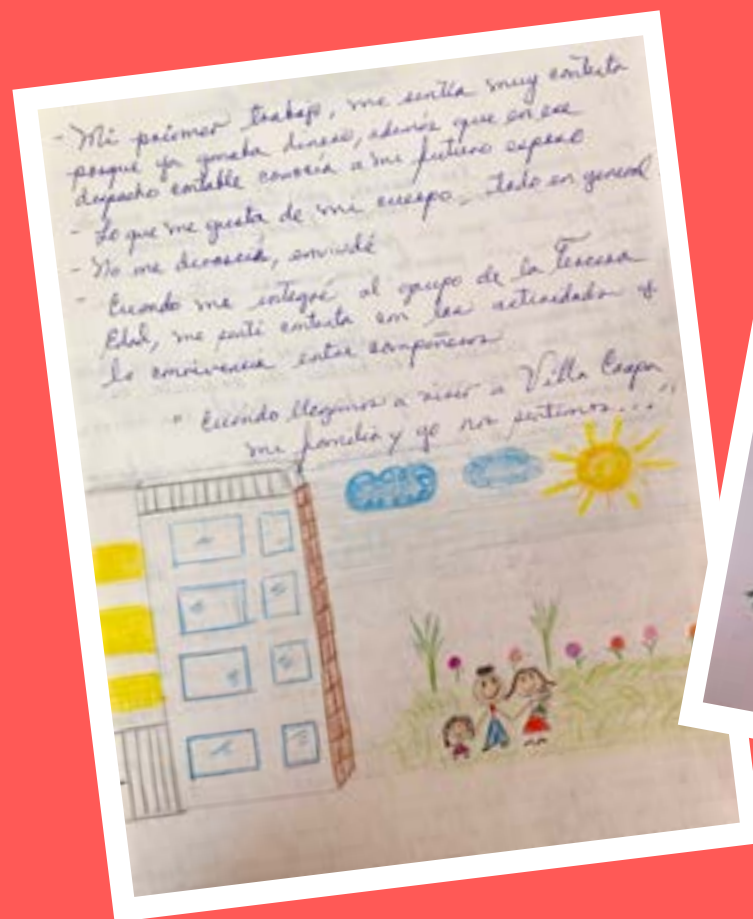 - Mi primer trabajo, me sentía muy contenta
porque ya ganaba dinero, además que en ese
despacho contable conocía a mi futuro esposo
- Lo que me gusta de mi cuerpo, todo en general.
- No me divorcié, enviudé
- Cuando me integré al grupo de la Tercera
Edad, me sentí contenta con las actividades y
la convivencia entre compañeros
" Cuando llegamos a vivir a Villa Coapa,
mi familia y yo nos sentimos..."